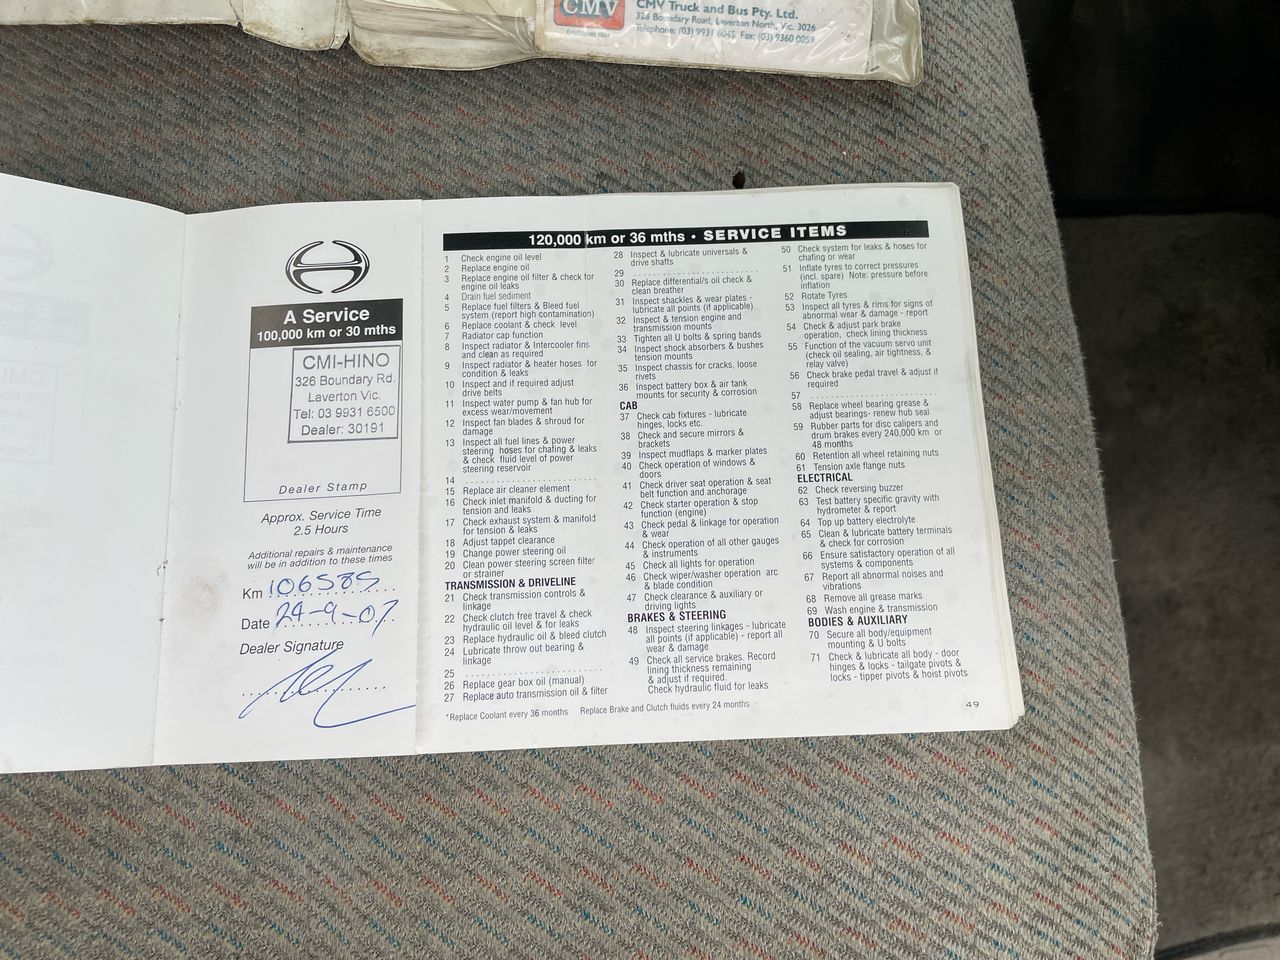 CMV
Established 1934
CMV Truck and Bus Pty. Ltd.
326 Boundary Road, Laverton North, Vic. 3026
Telephone: (03) 9931 6045 Fax: (03) 9360 0059
A Service
100,000 km or 30 mths
CMI-HINO
326 Boundary Rd.
Laverton Vic.
Tel: 03 9931 6500
Dealer: 30191
Dealer Stamp
Approx. Service Time
2.5 Hours
Additional repairs & maintenance
will be in addition to these times
Km 106585
Date 24-9-07
Dealer Signature
120,000 km or 36 mths • SERVICE ITEMS
1 Check engine oil level
2 Replace engine oil
3 Replace engine oil filter & check for
engine oil leaks
4 Drain fuel sediment
5 Replace fuel filters & Bleed fuel
system (report high contamination)
6 Replace coolant & check level
7 Radiator cap function
8 Inspect radiator & Intercooler fins
and clean as required
9 Inspect radiator & heater hoses for
condition & leaks
10 Inspect and if required adjust
drive belts
11 Inspect water pump & fan hub for
excess wear/movement
12 Inspect fan blades & shroud for
damage
13 Inspect all fuel lines & power
steering hoses for chafing & leaks
& check fluid level of power
steering reservoir
14
15 Replace air cleaner element
16 Check inlet manifold & ducting for
tension and leaks
17 Check exhaust system & manifold
for tension & leaks
18 Adjust tappet clearance
19 Change power steering oil
20 Clean power steering screen filter
or strainer
TRANSMISSION & DRIVELINE
21 Check transmission controls &
linkage
22 Check clutch free travel & check
hydraulic oil level & for leaks
23 Replace hydraulic oil & bleed clutch
24 Lubricate throw out bearing &
linkage
25
26 Replace gear box oil (manual)
27 Replace auto transmission oil & filter
28 Inspect & lubricate universals &
drive shafts
29
30 Replace differential/s oil check &
clean breather
31 Inspect shackles & wear plates -
lubricate all points (if applicable)
32 Inspect & tension engine and
transmission mounts
33 Tighten all U bolts & spring bands
34 Inspect shock absorbers & bushes
tension mounts
35 Inspect chassis for cracks, loose
rivets
36 Inspect battery box & air tank
mounts for security & corrosion
CAB
37 Check cab fixtures - lubricate
hinges, locks etc.
38 Check and secure mirrors &
brackets
39 Inspect mudflaps & marker plates
40 Check operation of windows &
doors
41 Check driver seat operation & seat
belt function and anchorage
42 Check starter operation & stop
function (engine)
43 Check pedal & linkage for operation
& wear
44 Check operation of all other gauges
& instruments
45 Check all lights for operation
46 Check wiper/washer operation arc
& blade condition
47 Check clearance & auxiliary or
driving lights
BRAKES & STEERING
48 Inspect steering linkages - lubricate
all points (if applicable) - report all
wear & damage
49 Check all service brakes. Record
lining thickness remaining
& adjust if required.
Check hydraulic fluid for leaks
50 Check system for leaks & hoses for
chafing or wear
51 Inflate tyres to correct pressures
(incl. spare) Note: pressure before
inflation
52 Rotate Tyres
53 Inspect all tyres & rims for signs of
abnormal wear & damage - report
54 Check & adjust park brake
operation, check lining thickness
55 Function of the vacuum servo unit
(check oil sealing, air tightness, &
relay valve)
56 Check brake pedal travel & adjust if
required
57
58 Replace wheel bearing grease &
adjust bearings- renew hub seal
59 Rubber parts for disc calipers and
drum brakes every 240,000 km or
48 months
60 Retention all wheel retaining nuts
61 Tension axle flange nuts
ELECTRICAL
62 Check reversing buzzer
63 Test battery specific gravity with
hydrometer & report
64 Top up battery electrolyte
65 Clean & lubricate battery terminals
& check for corrosion
66 Ensure satisfactory operation of all
systems & components
67 Report all abnormal noises and
vibrations
68 Remove all grease marks
69 Wash engine & transmission
BODIES & AUXILIARY
70 Secure all body/equipment
mounting & U bolts
71 Check & lubricate all body - door
hinges & locks - tailgate pivots &
locks - tipper pivots & hoist pivots
*Replace Coolant every 36 months Replace Brake and Clutch fluids every 24 months
49